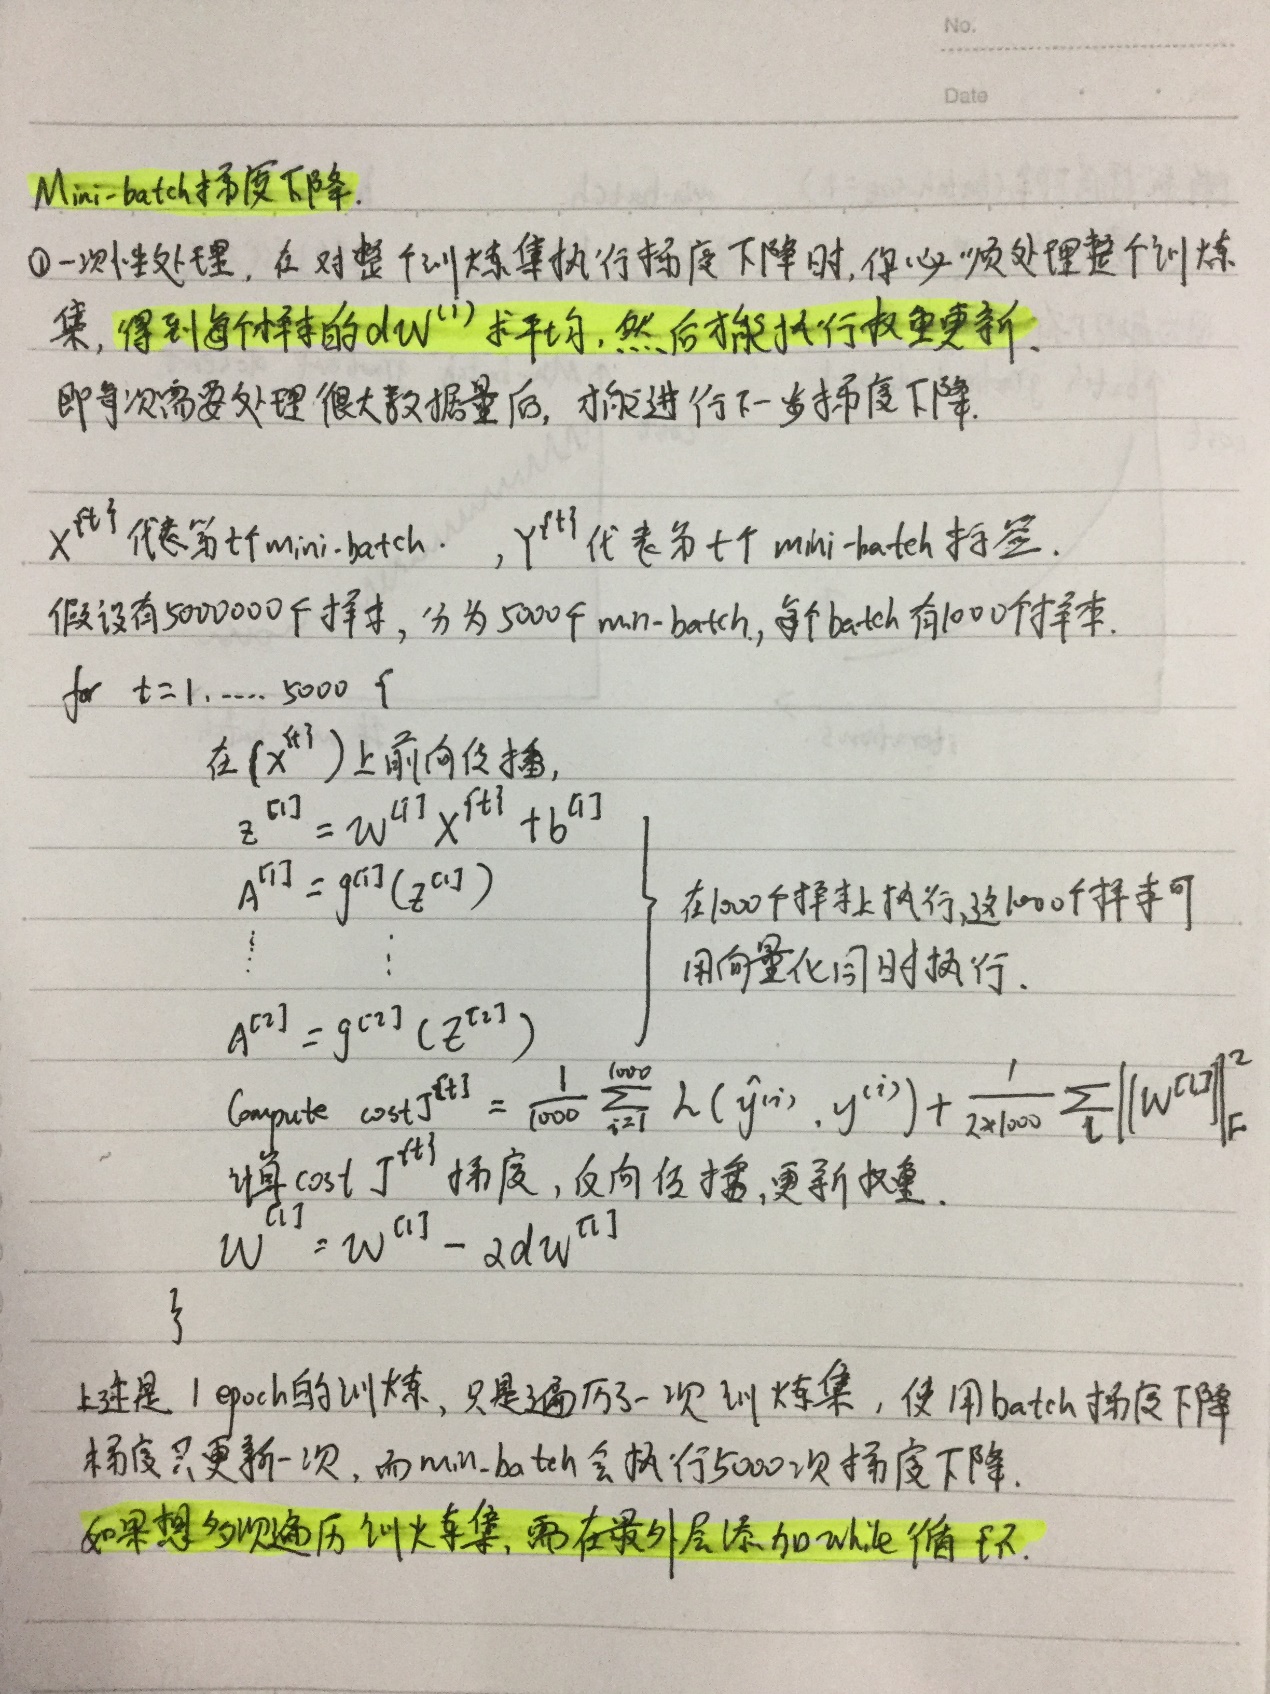 No.
Date
Mini-batch梯度下降.
①一次性处理,在对整个训炼集执行梯度下降时,你必须处理整个训炼
集,得到每个样本的dW⁽ⁱ⁾求平均,然后才能执行权重更新.
即每次需要处理很大数据量后,才能进行下一步梯度下降.
X^{t} 代表第t个mini-batch. ,Y^{t} 代表第t个 mini-batch 标签.
假设有5000000个样本,分为5000个 min-batch,每个batch有1000个样本.
for t=1,..... 5000 {
在(X^{t})上前向传播,
z^[1] = W^[1] X^{t} + b^[1]
A^[1] = g^[1] (Z^[1])
⋮ ⋮
在1000个样本上执行,这1000个样本可
用向量化同时执行.
A^[2] = g^[2] (Z^[2])
Compute cost J^{t} = 1/1000 Σ_{i=1}^{1000} L(ŷ^(i), y^(i)) + 1/(2×1000) Σ_l ||W^[l]||_F^2
计算cost J^{t} 梯度,反向传播,更新权重.
W^[1] = W^[1] - αdW^[1]
}
上述是 1 epoch的训炼,只是遍历了一次训炼集,使用batch梯度下降
梯度只更新一次,而min-batch会执行5000次梯度下降.
如果想多次遍历训炼集,需在最外层添加while循环.